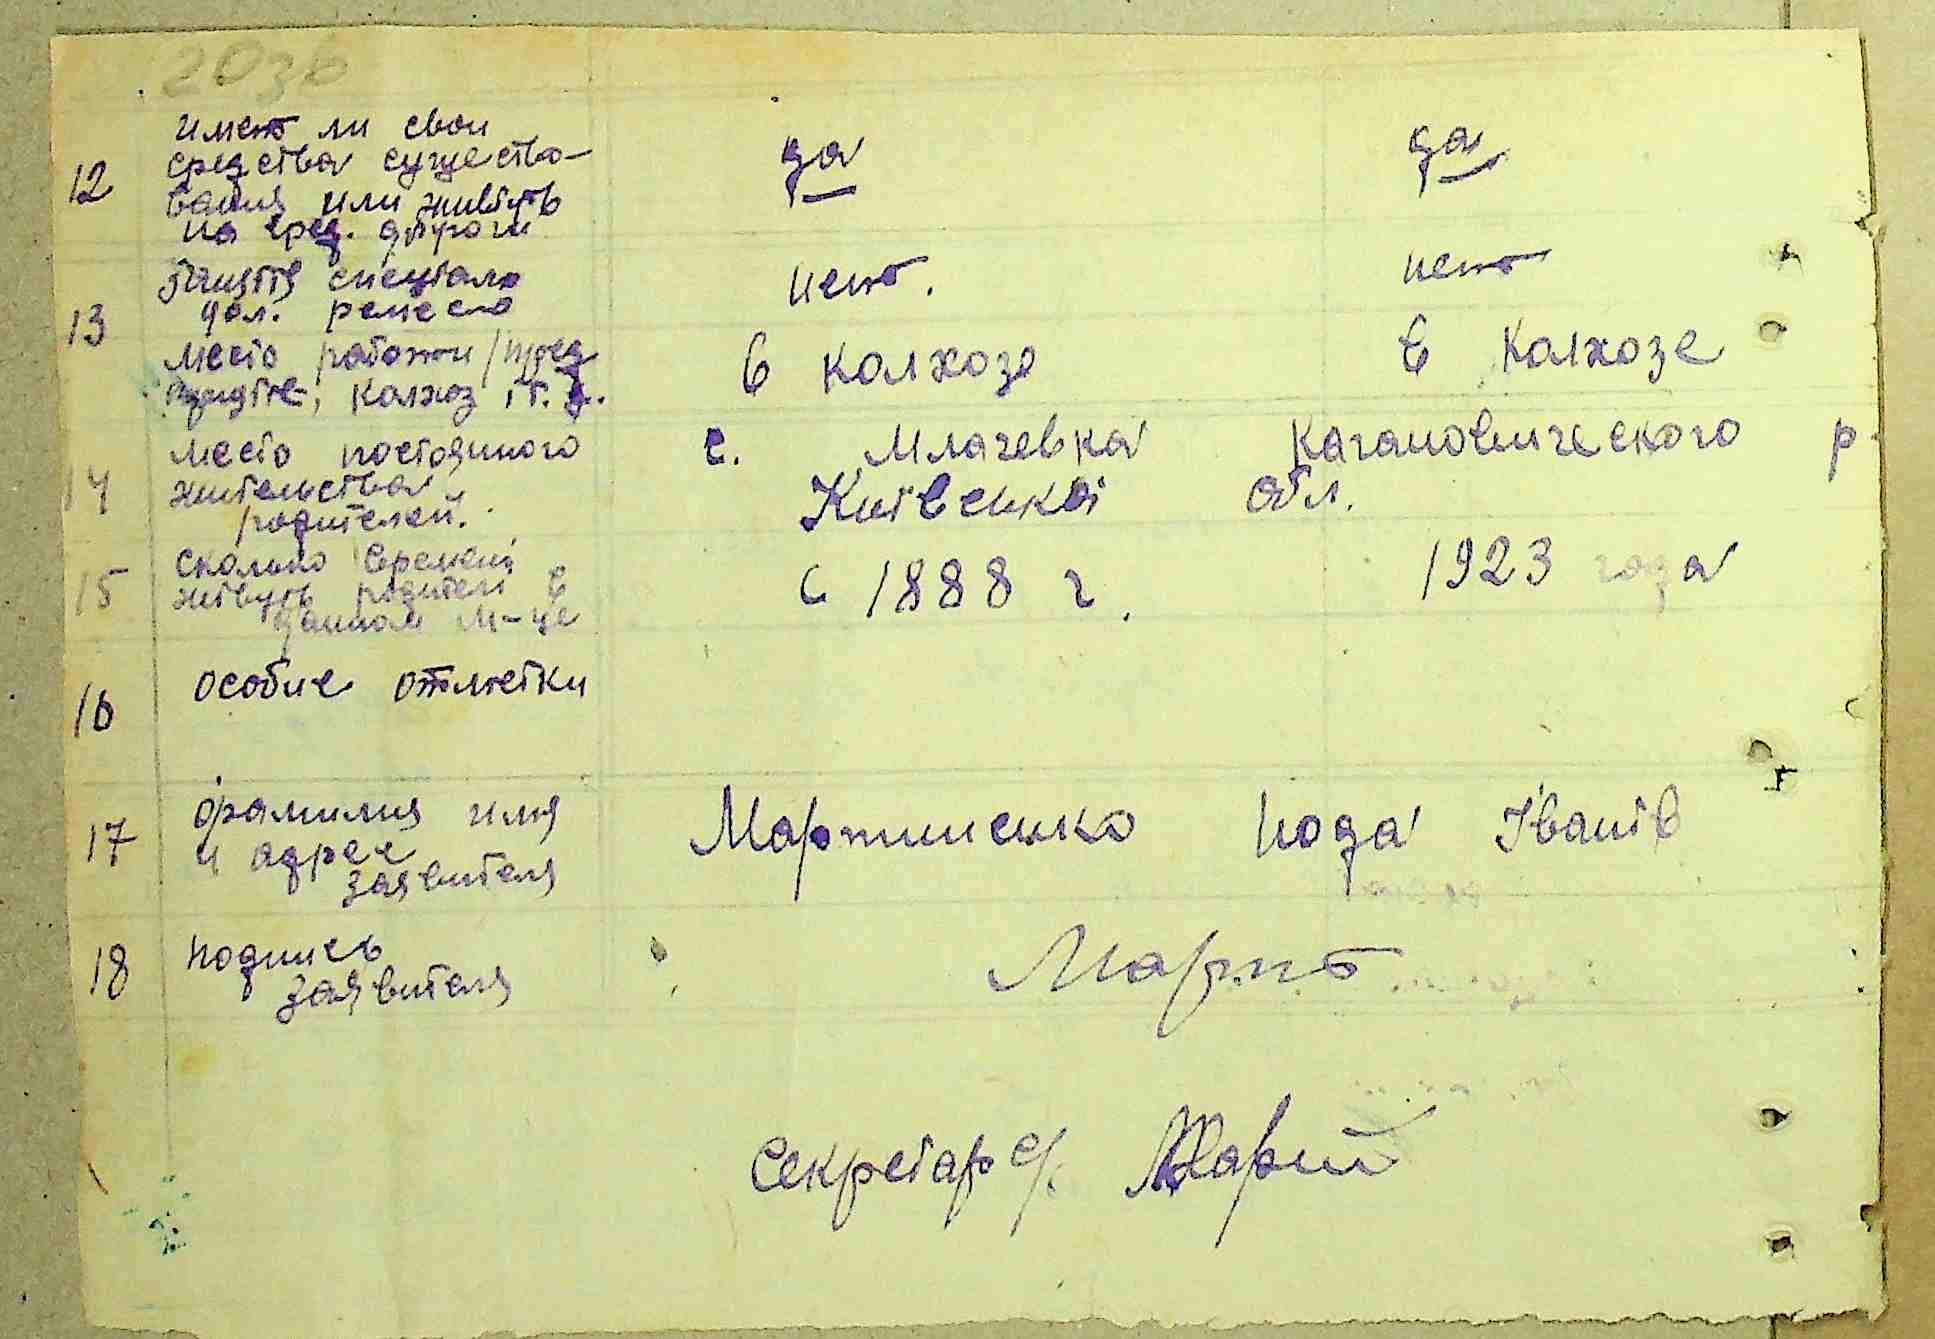 203б
имеют ли свои
12 средства существо-
вания или живуть
на сред. других
да да
13 занятія спеціаль
дол. ремесло
нет. нет
место работи / пред
колхоз, і т. д.
в колхозе в колхозе
14 место постояного
жительства
родителей.
с. Млачевка Кагановического р
Київської обл.
15 сколько времені
живуть родителі в
данном м-це
с 1888 г. 1923 года
16 особие отметки
17 фамилия имя
и адрес
заявителя
Мартиненко Іванів
18 подпись
заявителя
Март
Секретар с/.